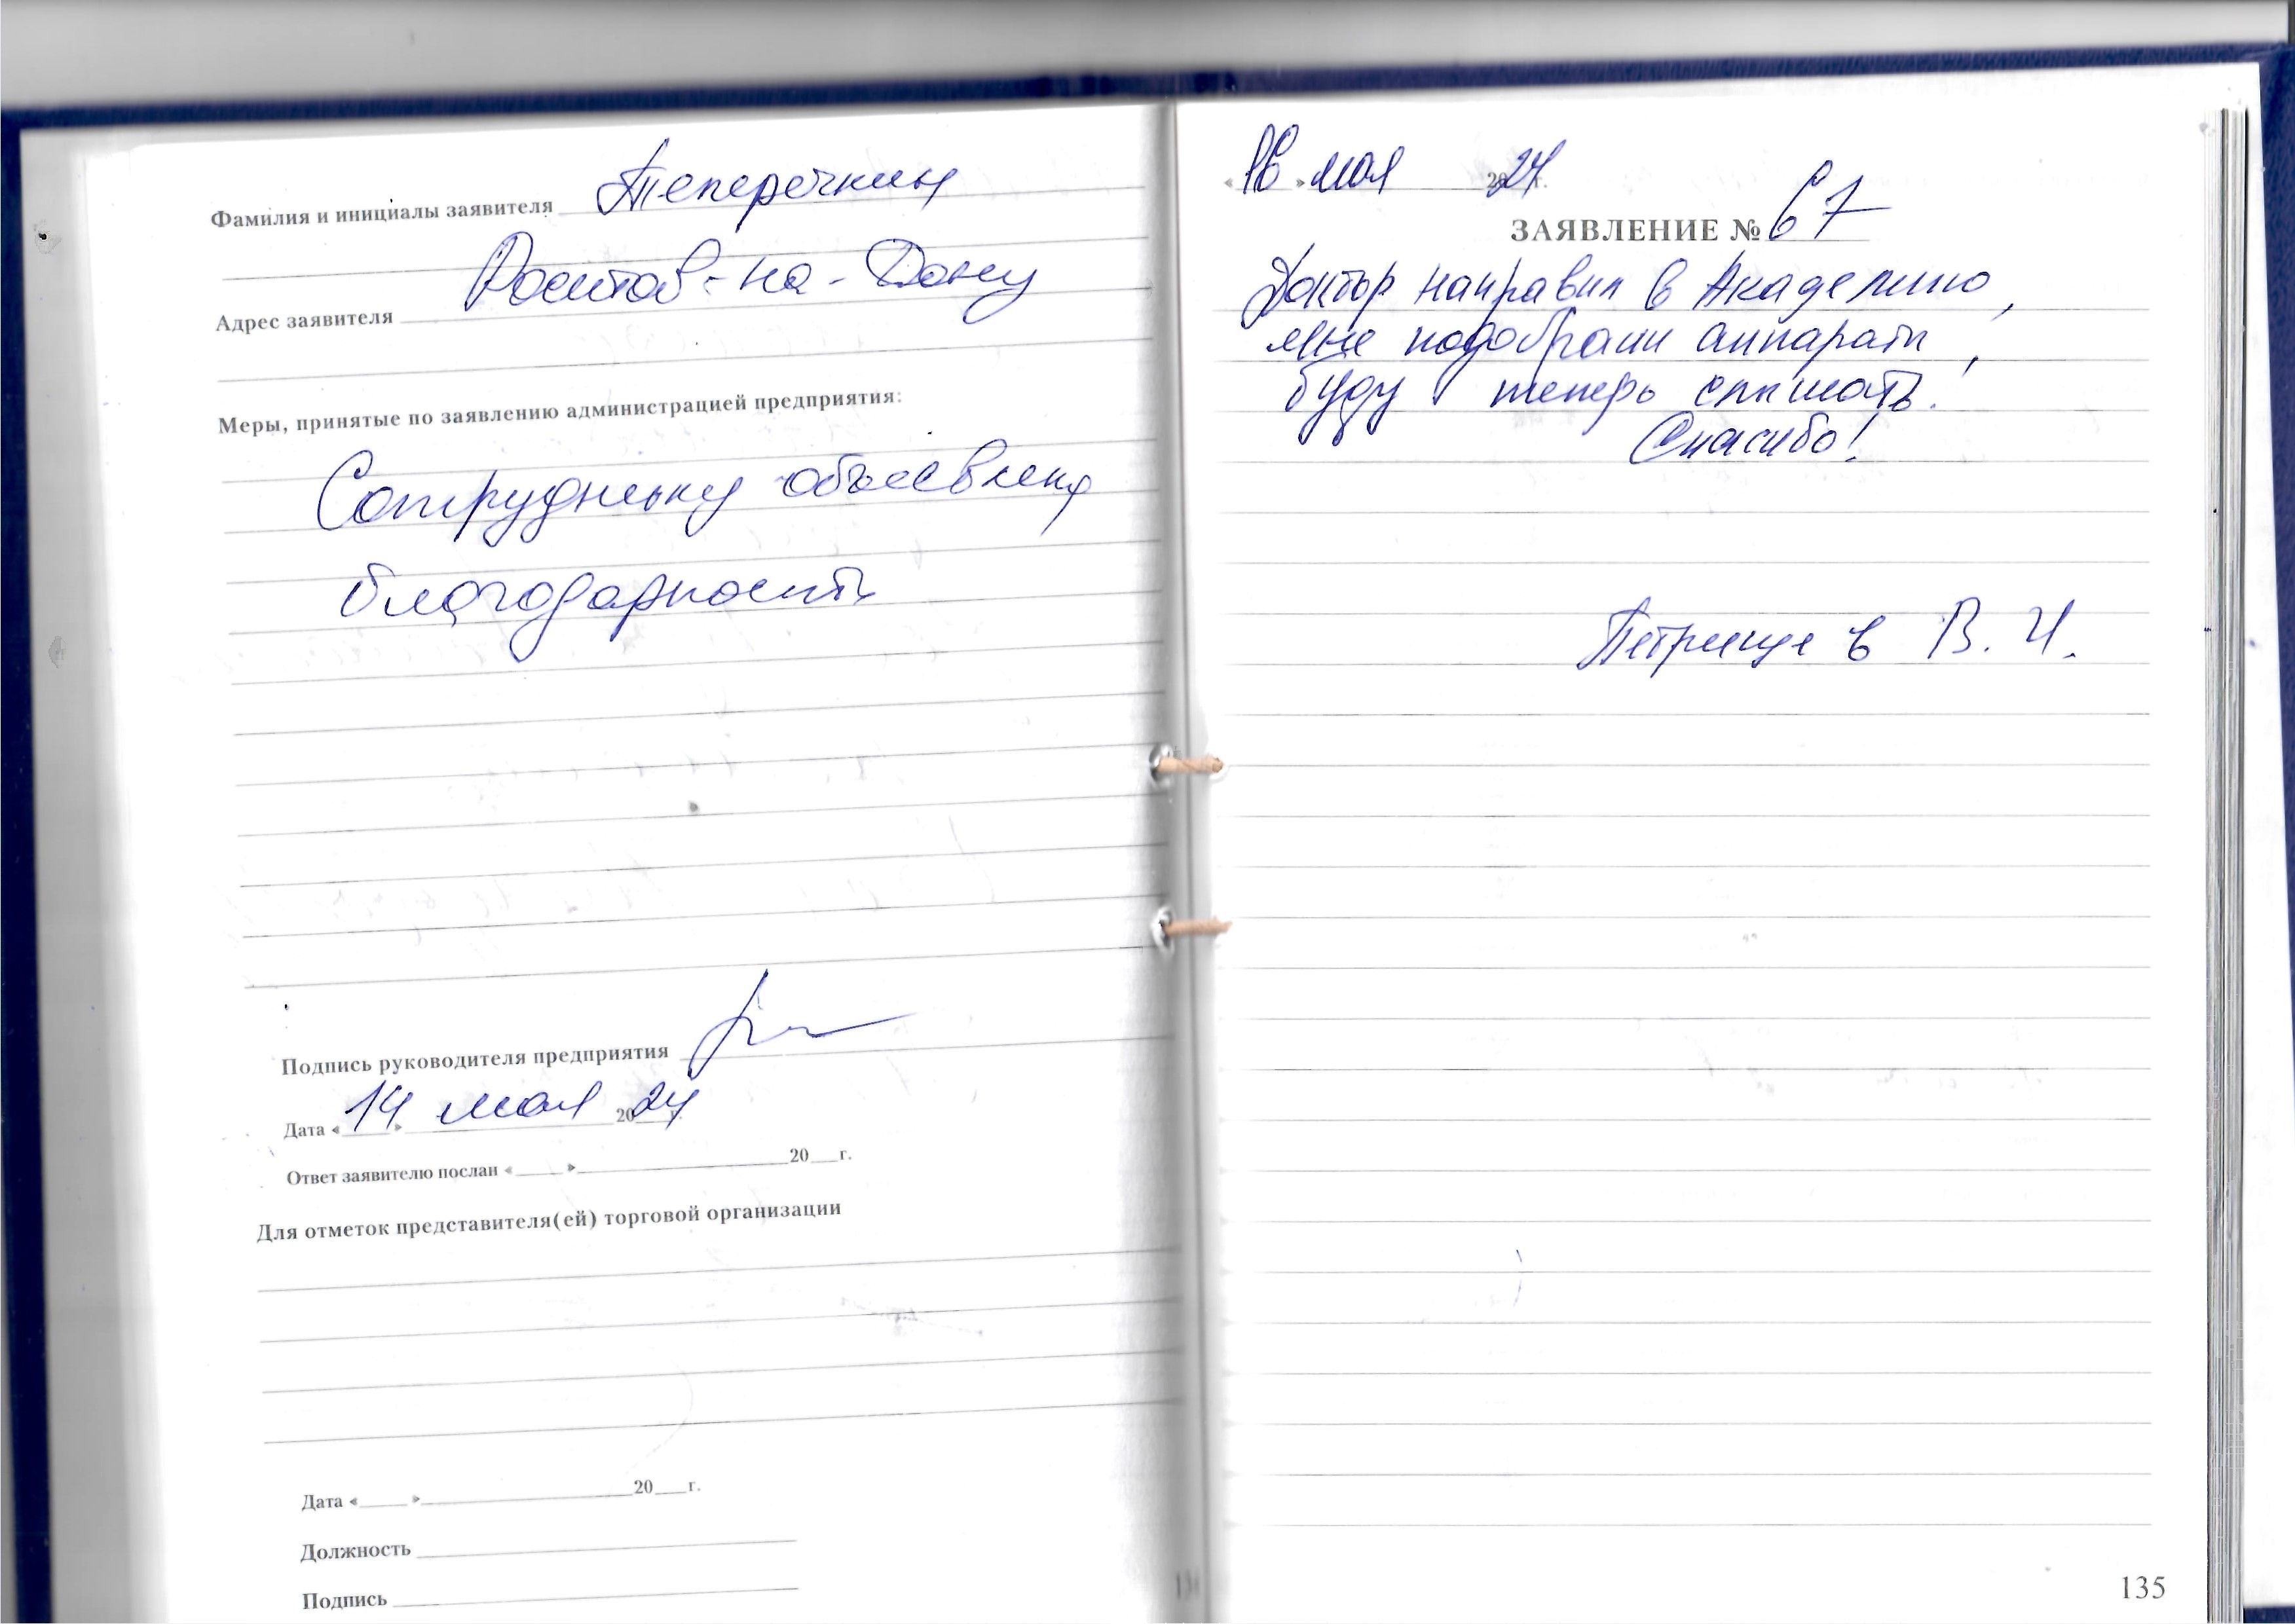 Фамилия и инициалы заявителя Теперечкин
Ростов-на-Дону
Адрес заявителя
Меры, принятые по заявлению администрацией предприятия:
Сотруднику объявлена
благодарность
Подпись руководителя предприятия
Дата «14» мая 2024 г.
Ответ заявителю послан «___» ___ 20__г.
Для отметок представителя(ей) торговой организации
Дата «___» ___ 20__г.
Должность
Подпись
«16» мая 2024 г.
ЗАЯВЛЕНИЕ № 67
Доктор направил в Академию,
мне подобрали аппараты,
буду теперь слышать!
Спасибо!
Петрищев В. И.
135